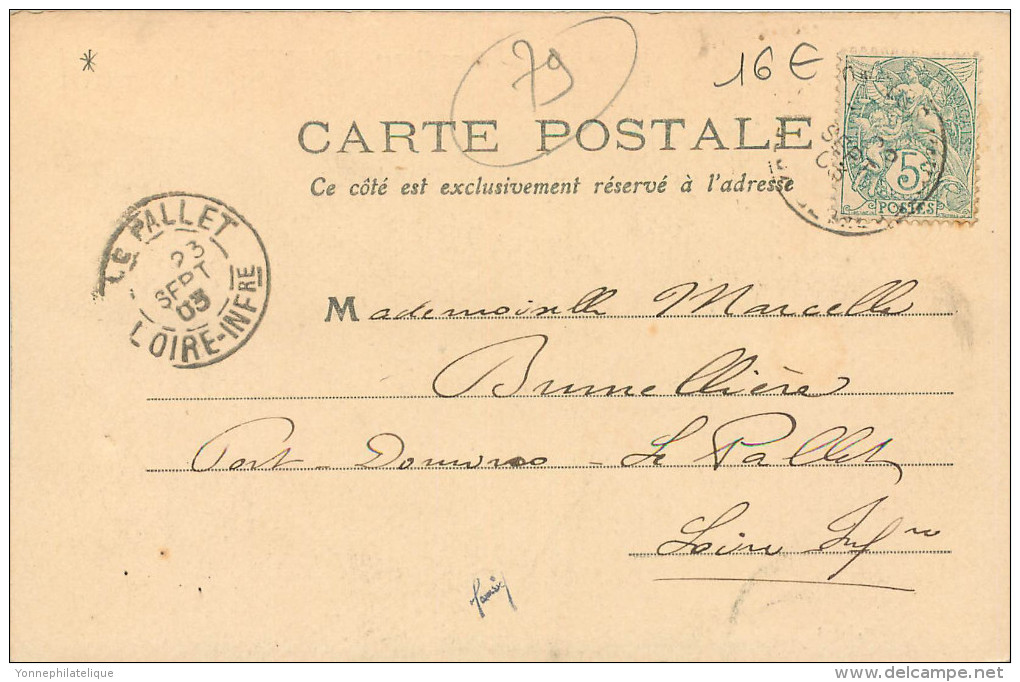 *
79
16 €
CARTE POSTALE
Ce côté est exclusivement réservé à l'adresse
FRANÇAISE
5
POSTES
LE PALLET
23
SEPT
03
LOIRE-INFRE
Mademoiselle Marcelle
Brunellière
Port - Domino - Le Pallet
Loire Infre
Yonnephilatelique
www.delcampe.net